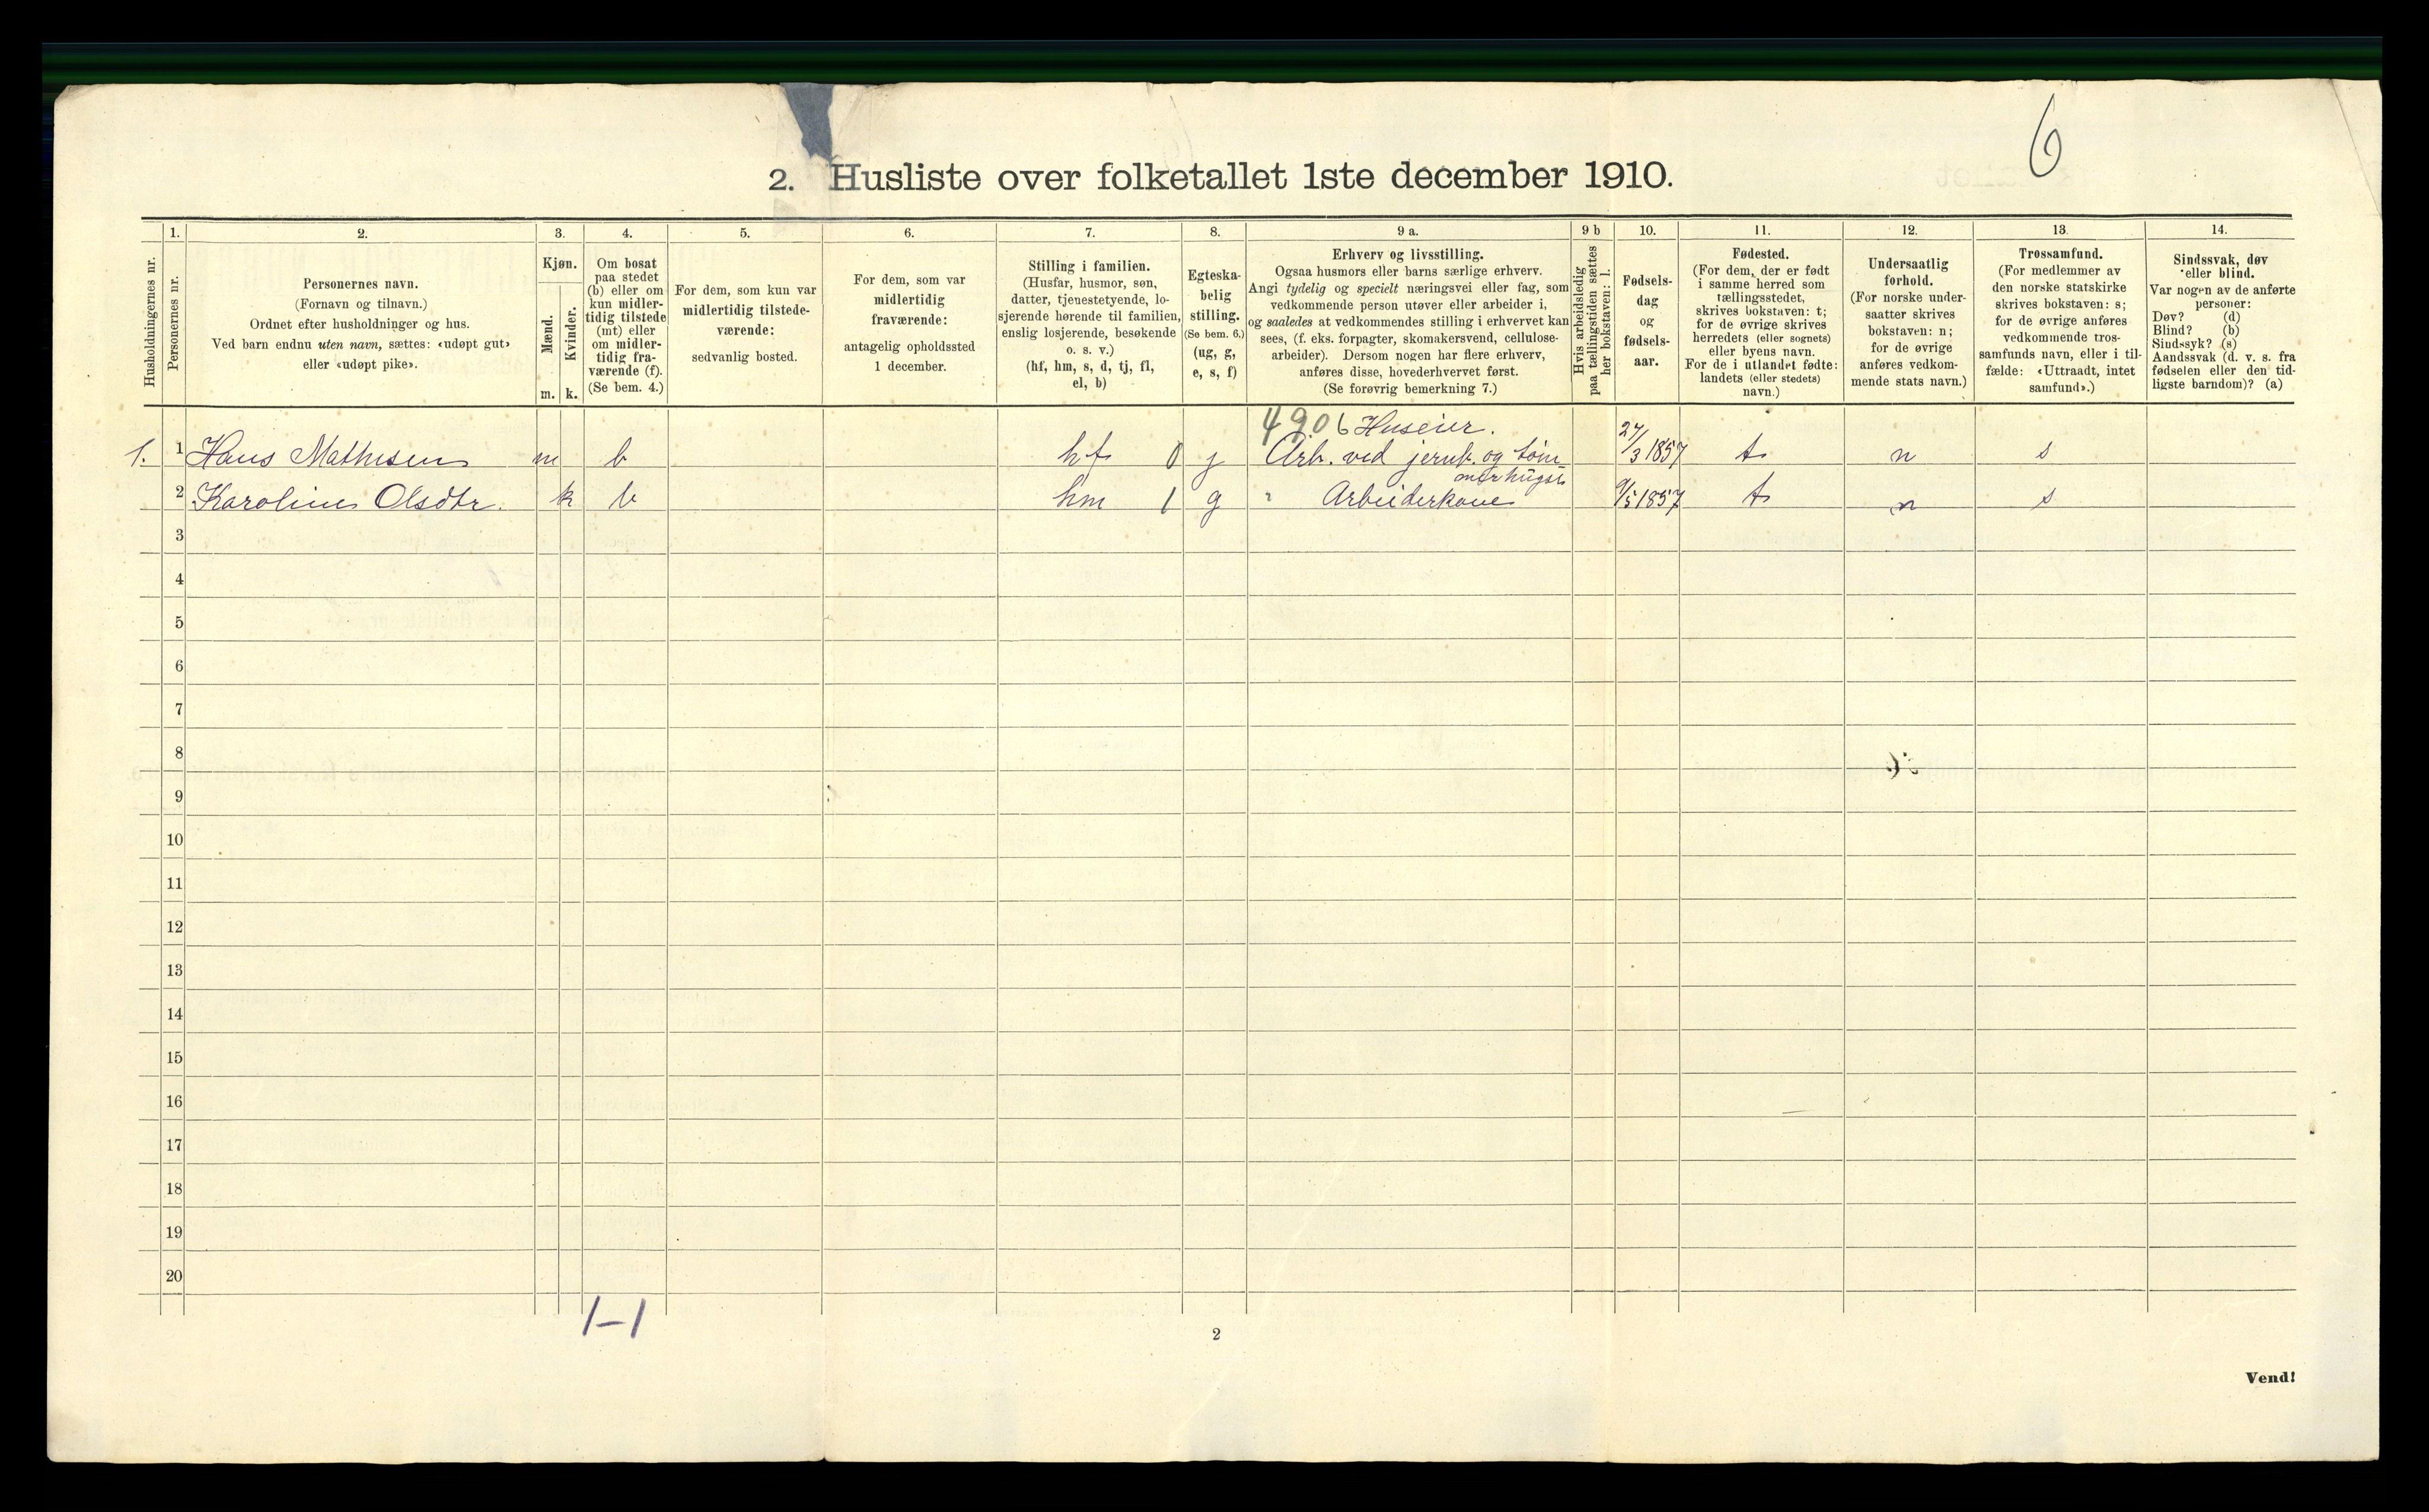 6
2. Husliste over folketallet 1ste december 1910.
Husholdningernes nr.
1.
Personernes nr.
2.
Personernes navn.
(Fornavn og tilnavn.)
Ordnet efter husholdninger og hus.
Ved barn endnu uten navn, sættes: «udøpt gut»
eller «udøpt pike».
3.
Kjøn.
Mænd.
Kvinder.
m. k.
4.
Om bosat
paa stedet
(b) eller om
kun midler-
tidig tilstede
(mt) eller
om midler-
tidig fra-
værende (f).
(Se bem. 4.)
5.
For dem, som kun var
midlertidig tilstede-
værende:
sedvanlig bosted.
6.
For dem, som var
midlertidig
fraværende:
antagelig opholdssted
1 december.
7.
Stilling i familien.
(Husfar, husmor, søn,
datter, tjenestetyende, lo-
sjerende hørende til familien,
enslig losjerende, besøkende
o. s. v.)
(hf, hm, s, d, tj, fl,
el, b)
8.
Egteska-
belig
stilling.
(Se bem. 6.)
(ug, g,
e, s, f)
9 a.
Erhverv og livsstilling.
Ogsaa husmors eller barns særlige erhverv.
Angi tydelig og specielt næringsvei eller fag, som
vedkommende person utøver eller arbeider i,
og saaledes at vedkommendes stilling i erhvervet kan
sees, (f. eks. forpagter, skomakersvend, cellulose-
arbeider). Dersom nogen har flere erhverv,
anføres disse, hovederhvervet først.
(Se forøvrig bemerkning 7.)
9 b
Hvis arbeidsledig
paa tællingstiden sættes
her bokstaven: l.
10.
Fødsels-
dag
og
fødsels-
aar.
11.
Fødested.
(For dem, der er født
i samme herred som
tællingsstedet,
skrives bokstaven: t;
for de øvrige skrives
herredets (eller sognets)
eller byens navn.
For de i utlandet fødte:
landets (eller stedets)
navn.)
12.
Undersaatlig
forhold.
(For norske under-
saatter skrives
bokstaven: n;
for de øvrige
anføres vedkom-
mende stats navn.)
13.
Trossamfund.
(For medlemmer av
den norske statskirke
skrives bokstaven: s;
for de øvrige anføres
vedkommende tros-
samfunds navn, eller i til-
fælde: «Uttraadt, intet
samfund».)
14.
Sindssvak, døv
eller blind.
Var nogen av de anførte
personer:
Døv? (d)
Blind? (b)
Sindssyk? (s)
Aandssvak (d. v. s. fra
fødselen eller den tid-
ligste barndom)? (a)
4906 Huseier.
1. 1 Hans Mathisen m b hf 0 g Arb. ved jernb. og töm- 27/3 1857 t n s
merhugst
2 Karoline Olsdtr. k b hm 1 g " Arbeiderkone 9/5 1857 t n s
3
4
5
6
7
8
9
10
11
12
13
14
15
16
17
18
19
20
1-1
2
Vend!